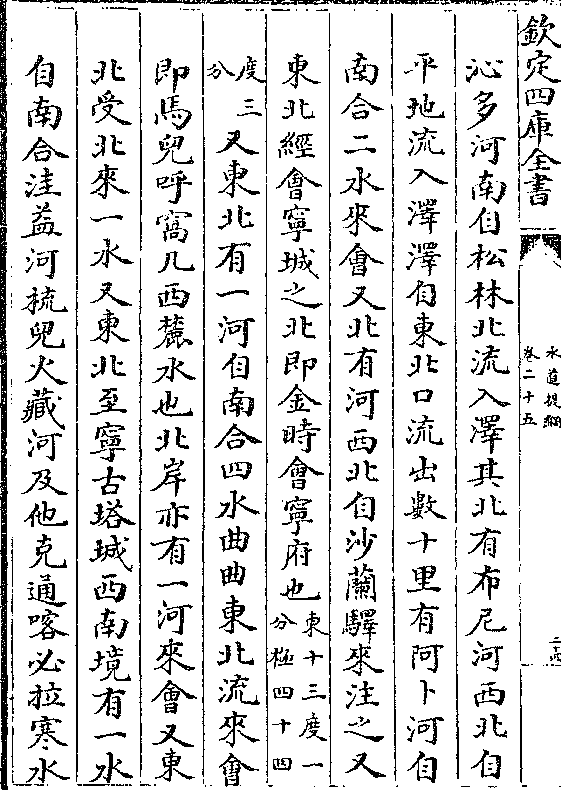 欽定四庫全書
水道提綱
卷二十五
二十四
沁多河南自松林北流入澤其北有布尼河西北自
平地流入澤澤自東北口流出數十里有阿卜河自
南合二水來會又北有河西北自沙蘭驛來注之又
東北經會寧城之北即金時會寧府也東十三度一分極四十四
度三分又東北有一河自南合四水曲曲東北流來會
即馬兒呼窩几西麓水也北岸亦有一河來會又東
北受北來一水又東北至寧古塔城西南境有一水
自南合洼益河梳兒火藏河及他克通喀必拉寒水